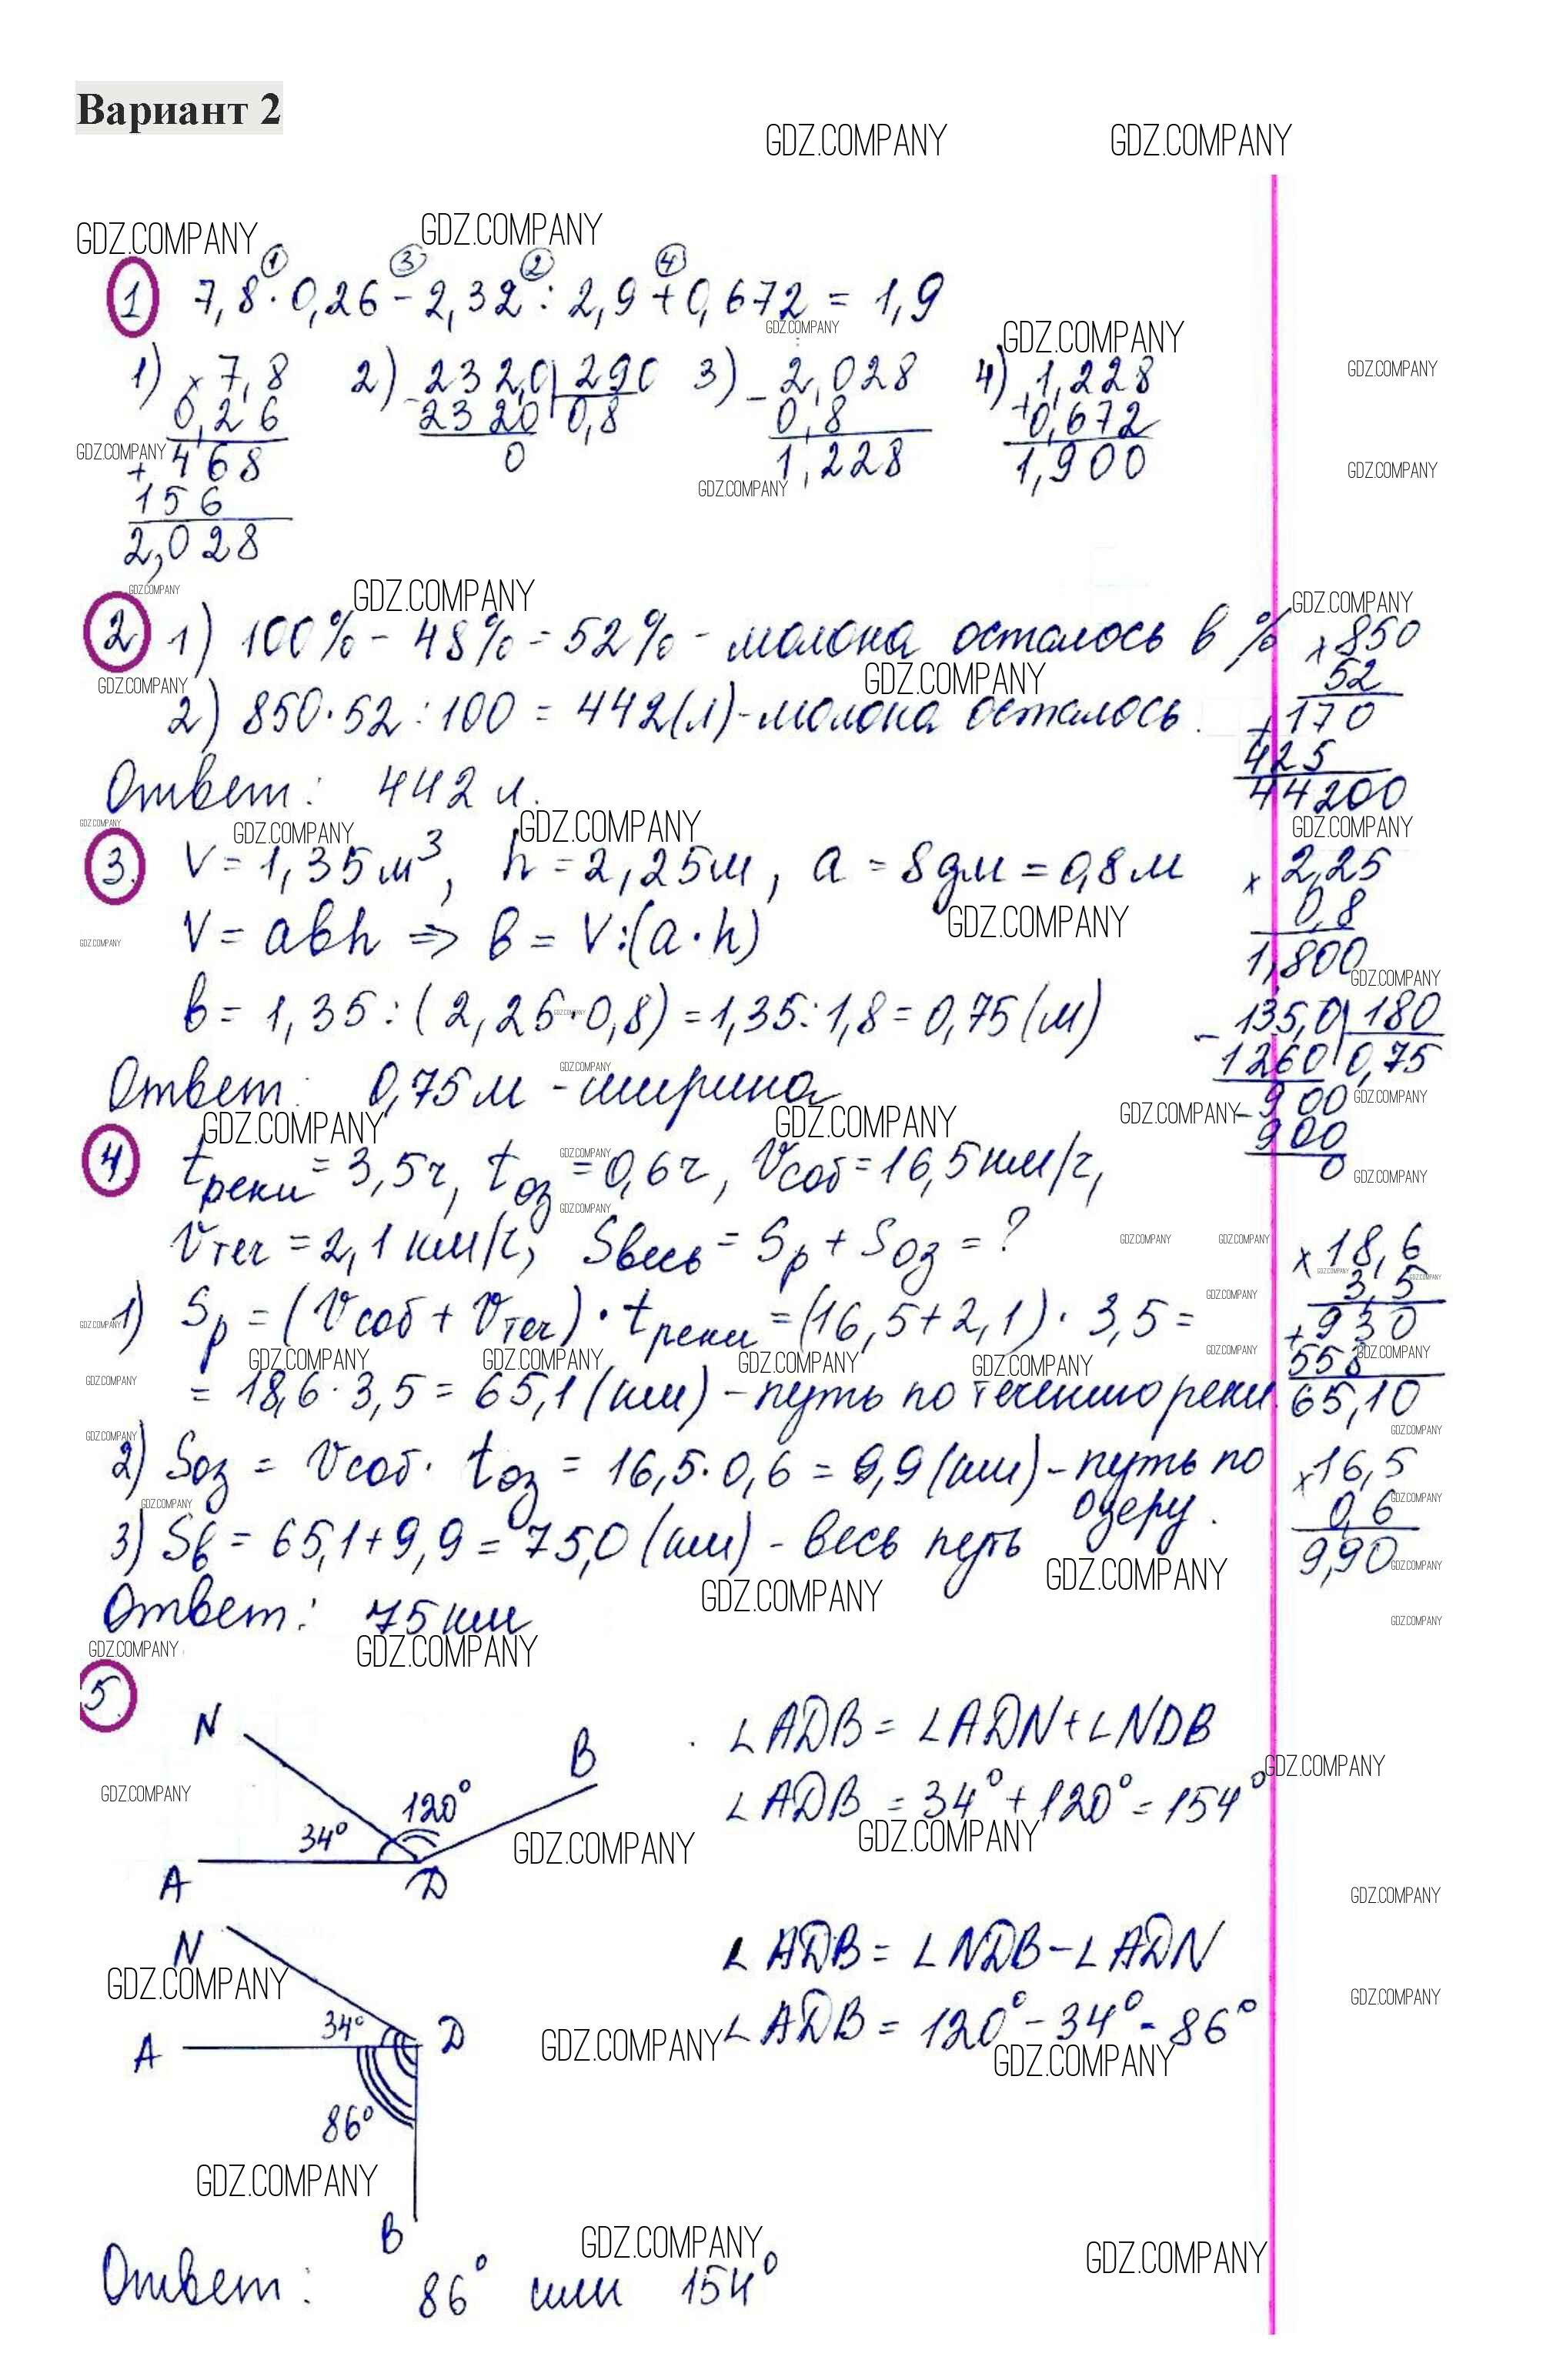 Вариант 2
GDZ.COMPANY GDZ.COMPANY
GDZ.COMPANY GDZ.COMPANY
① ③ ② ④
1 7,8·0,26-2,32:2,9+0,672=1,9
1) 2) 3) 4)
×7,8
0,26
+468
156
2,028
-232,0|290
2320|0,8
0
-2,028
0,8
1,228
1,228
+0,672
1,900
2 1) 100%-48%=52%-молока осталось в %
2) 850·52:100=442(л)-молока осталось.
×850
52
+170
425
44200
Ответ: 442 л.
3. V=1,35м³, h=2,25м, a=8дм=0,8м
V=abh ⇒ b=V:(a·h)
b=1,35:(2,25·0,8)=1,35:1,8=0,75(м)
Ответ: 0,75м-ширина
×2,25
0,8
1,800
-135,0|180
1260|0,75
-900
900
0
4 tреки=3,5ч, tоз=0,6ч, Vсоб=16,5км/ч,
Vтеч=2,1км/ч, Sвесь=Sр+Sоз=?
1) Sр=(Vсоб+Vтеч)·tреки=(16,5+2,1)·3,5=
=18,6·3,5=65,1(км)-путь по течению реки.
2) Sоз=Vсоб·tоз=16,5·0,6=9,9(км)-путь по
озеру.
3) Sв=65,1+9,9=75,0(км)-весь путь
Ответ: 75км
×18,6
3,5
+930
558
65,10
×16,5
0,6
9,90
5
N
B
120°
34°
A
D
∠ADB=∠ADN+∠NDB
∠ADB=34°+120°=154°
N
34°
D
A
86°
B
∠ADB=∠NDB-∠ADN
∠ADB=120°-34°=86°
Ответ: 86° или 154°